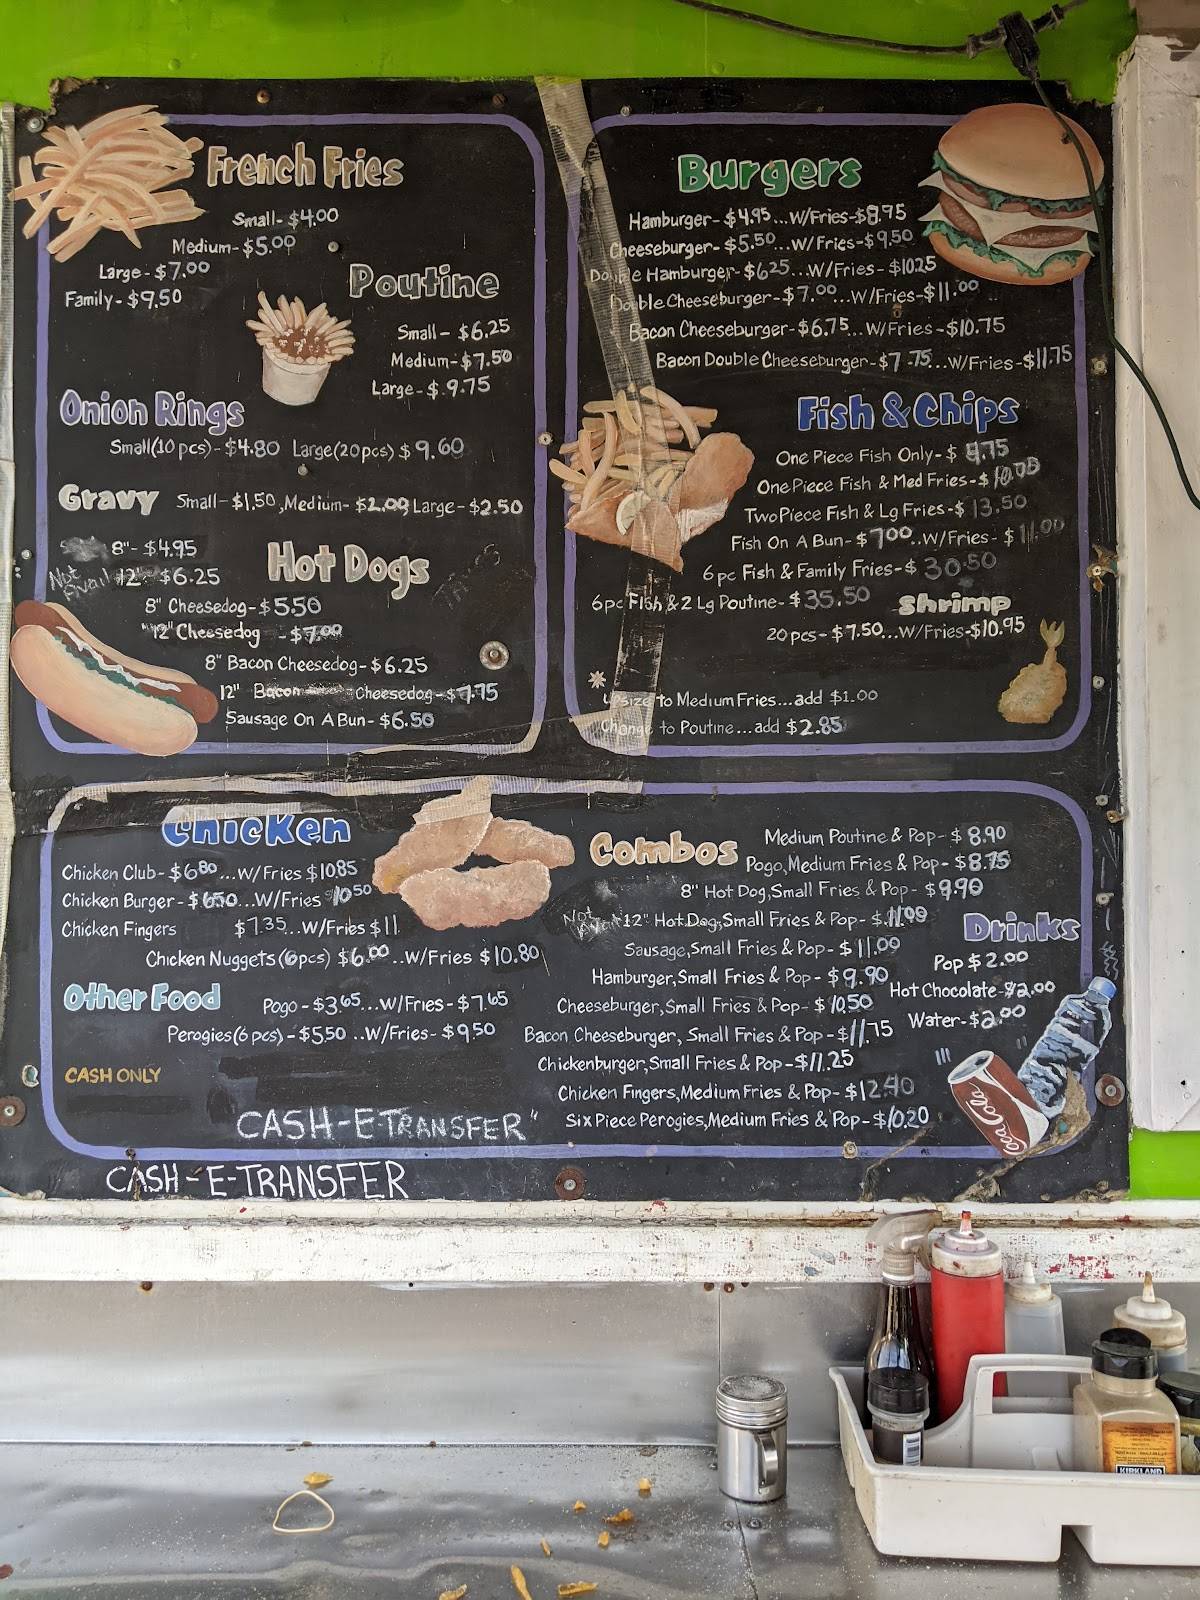 French Fries
Small- $4.00
Medium- $5.00
Large- $7.00
Family- $9.50
Poutine
Small- $6.25
Medium- $7.50
Large- $9.75
Onion Rings
Small(10pcs)- $4.80 Large(20pcs) $9.60
Gravy Small- $1.50, Medium- $2.00, Large- $2.50
Hot Dogs
8"- $4.95
Not 12" $6.25
8" Cheesedog- $5.50
"12" Cheesedog - $7.00
8" Bacon Cheesedog- $6.25
12" Bacon Cheesedog- $7.75
Sausage On A Bun- $6.50
Burgers
Hamburger- $4.95...W/Fries- $8.75
Cheeseburger- $5.50...W/Fries- $9.50
Double Hamburger- $6.25...W/Fries- $10.25
Double Cheeseburger- $7.00...W/Fries- $11.00
Bacon Cheeseburger- $6.75...W/Fries- $10.75
Bacon Double Cheeseburger- $7.75...W/Fries- $11.75
Fish & Chips
One Piece Fish Only- $
One Piece Fish & Med Fries- $
Two Piece Fish & Lg Fries- $13.50
Fish On A Bun- $7.00..W/Fries- $11.00
6pc Fish & Family Fries- $30.50
6pc Fish & 2 Lg Poutine- $35.50
Shrimp
20pcs- $7.50...W/Fries- $10.95
* Upsize to Medium Fries...add $1.00
Change to Poutine...add $2.85
Chicken
Chicken Club- $6.80...W/Fries $10.85
Chicken Burger- $6.50...W/Fries $10.50
Chicken Fingers $7.35...W/Fries $11
Chicken Nuggets(6pcs) $6.00..W/Fries $10.80
Other Food
Pogo- $3.65...W/Fries- $7.65
Perogies(6pcs)- $5.50..W/Fries- $9.50
CASH ONLY
CASH-E-TRANSFER"
CASH-E-TRANSFER
Combos
Medium Poutine & Pop- $8.90
Pogo, Medium Fries & Pop- $8.75
8" Hot Dog, Small Fries & Pop- $9.90
Not 12" Hot Dog, Small Fries & Pop- $11.00
Sausage, Small Fries & Pop- $11.00
Hamburger, Small Fries & Pop- $9.90
Cheeseburger, Small Fries & Pop- $10.50
Bacon Cheeseburger, Small Fries & Pop- $11.75
Chickenburger, Small Fries & Pop- $11.25
Chicken Fingers, Medium Fries & Pop- $12.40
Six Piece Perogies, Medium Fries & Pop- $10.20
Drinks
Pop $2.00
Hot Chocolate- $2.00
Water- $2.00
Coca Cola
KIRKLAND